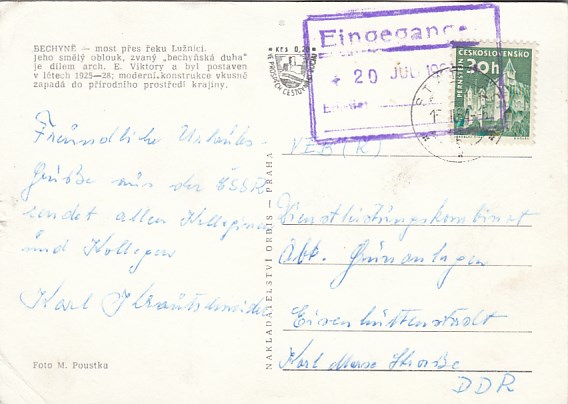 BECHYNĚ — most přes řeku Lužnici,
jeho smělý oblouk, zvaný „bechyňská duha"
je dílem arch. E. Viktory a byl postaven
v létech 1925—28; moderní konstrukce vkusně
zapadá do přírodního prostředí krajiny.
Kčs 0,20
Eingegangen
20 JUL
ČESKOSLOVENSKO
30h
PERNŠTEJN
Freundliche Urlaubs-
Grüße aus der ČSSR
sendet allen Kolleginnen
und Kollegen
Karl
Foto M. Poustka
NAKLADATELSTVÍ ORBIS — PRAHA
VEB (K)
Dienstleistungskombinat
Abt. Grünanlagen
Eisenhüttenstadt
Karl Marx Straße
DDR